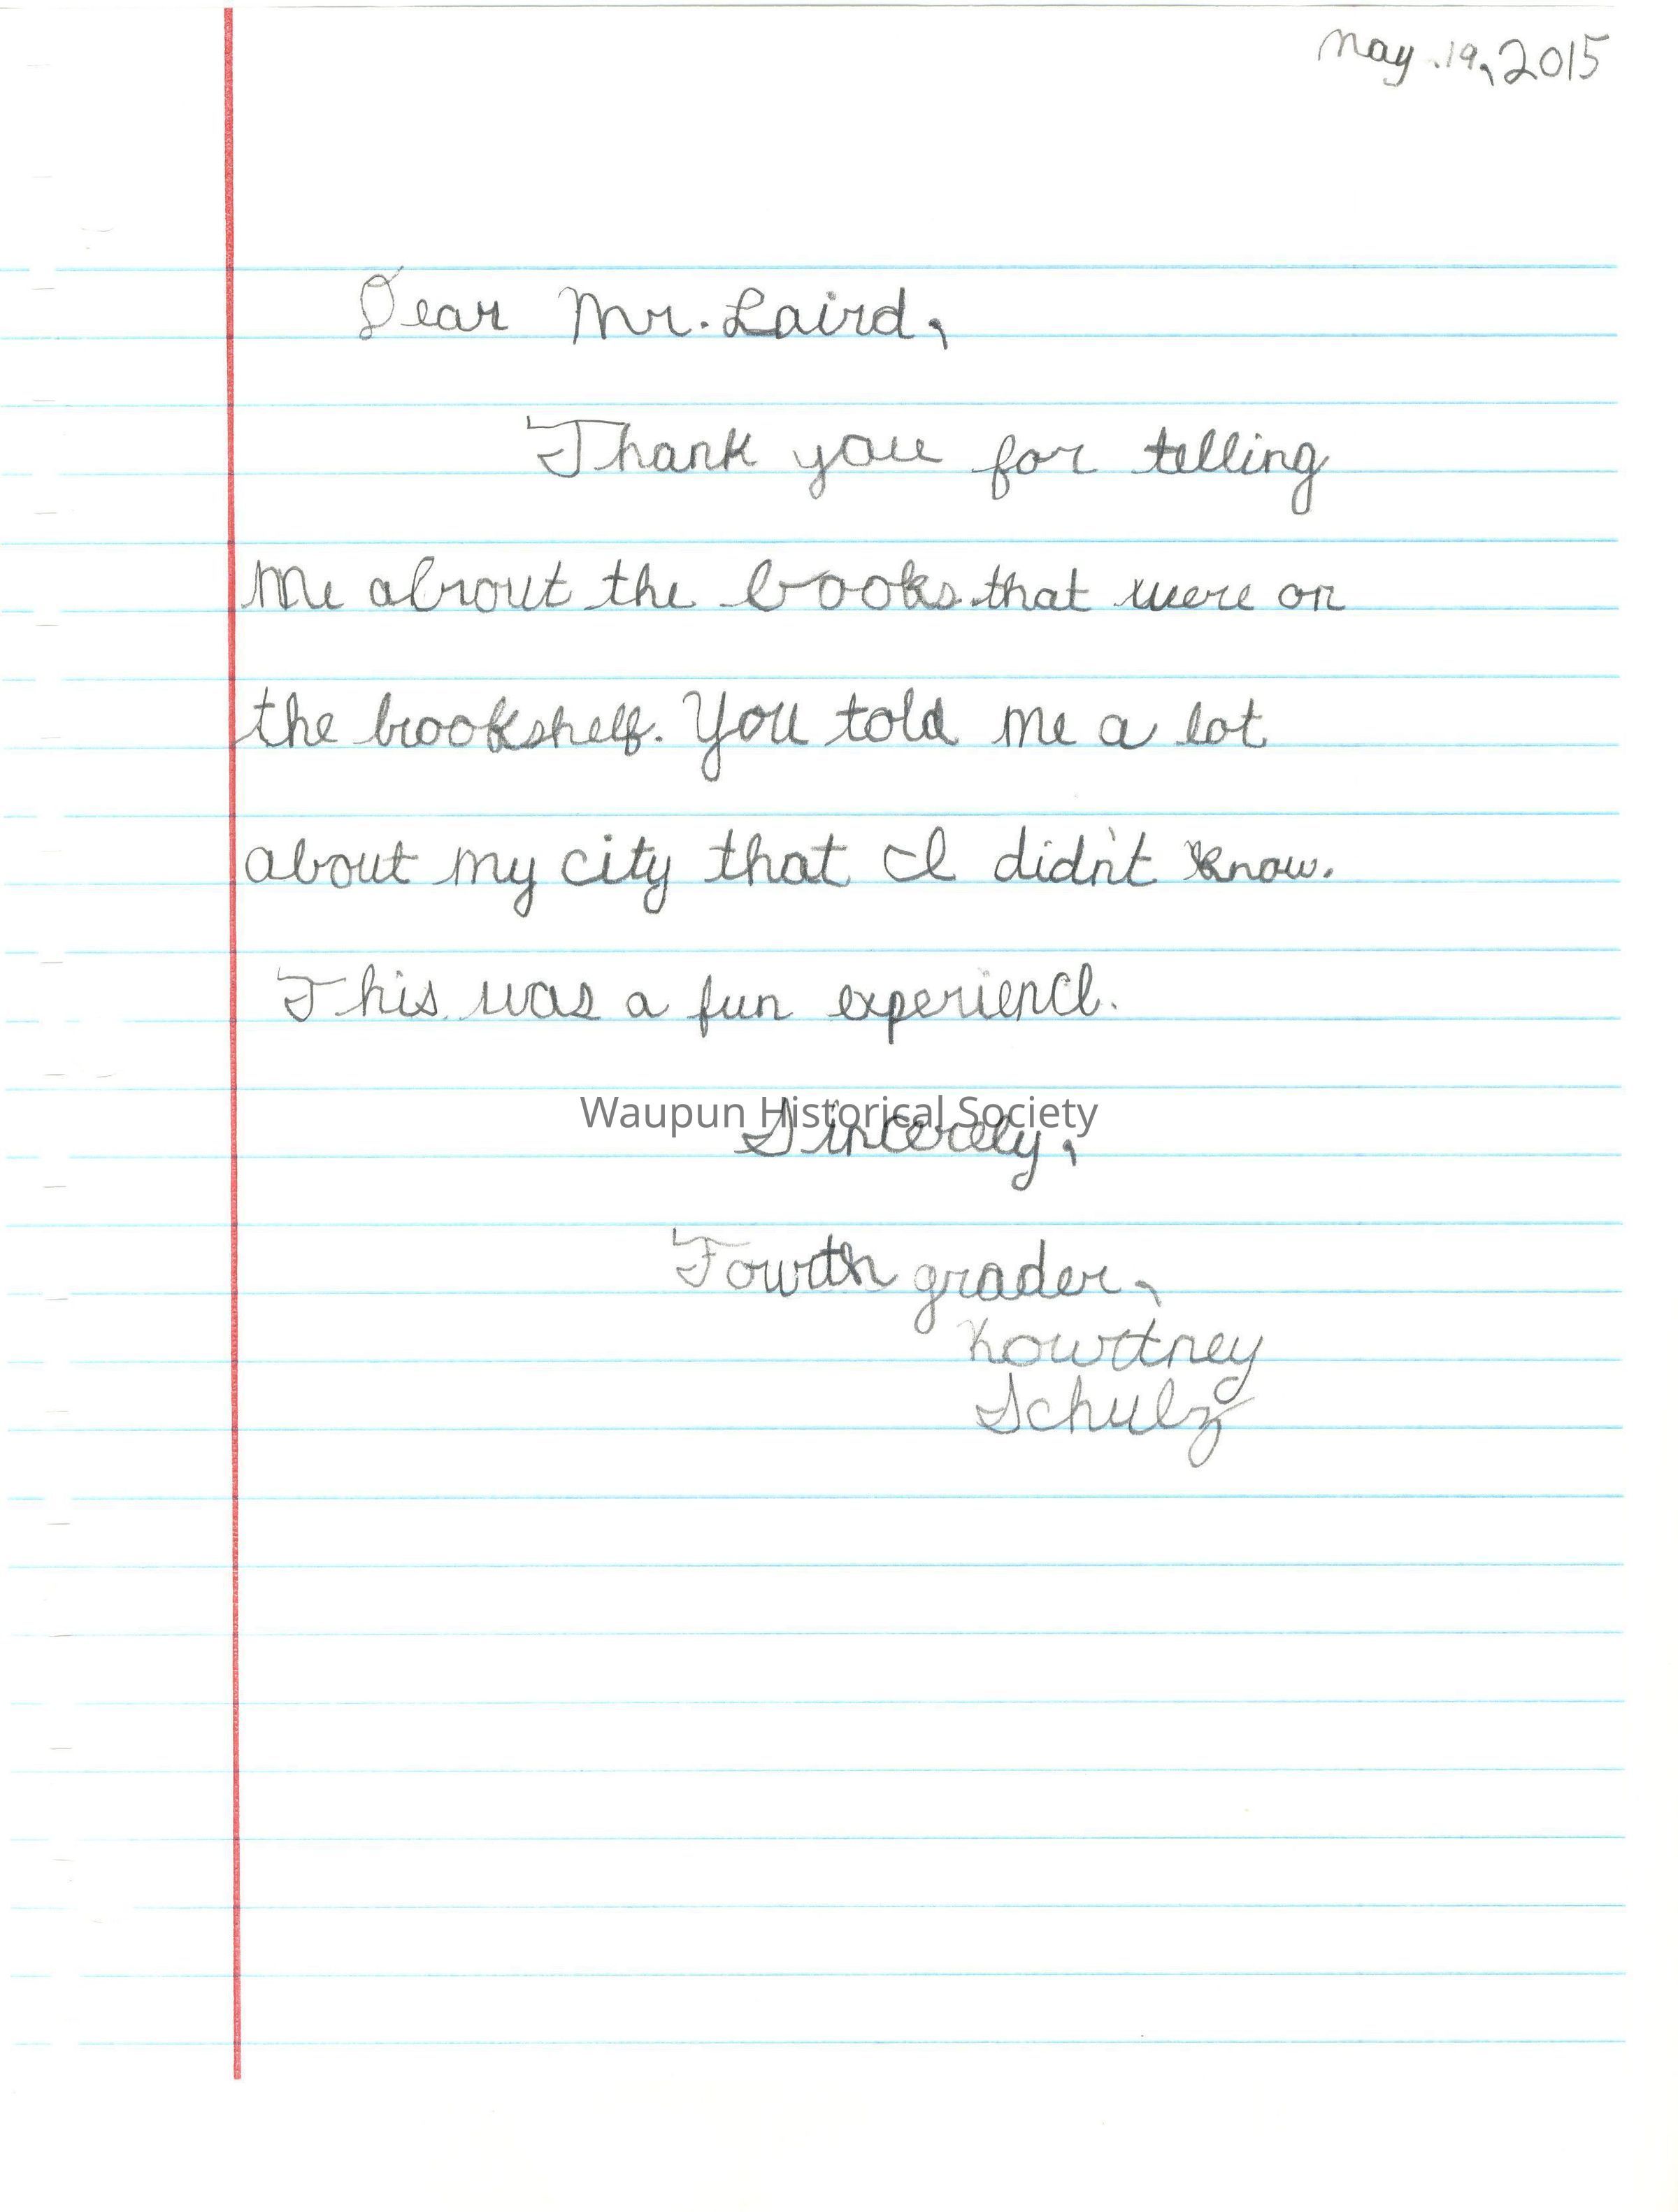 May .19, 2015
Dear Mr. Laird,
Thank you for telling
me about the books that were on
the bookshelf. You told me a lot
about my city that I didn't know.
This was a fun experience.
Waupun Historical Society
Sincerely,
Fourth grader,
Kourtney
Schulz